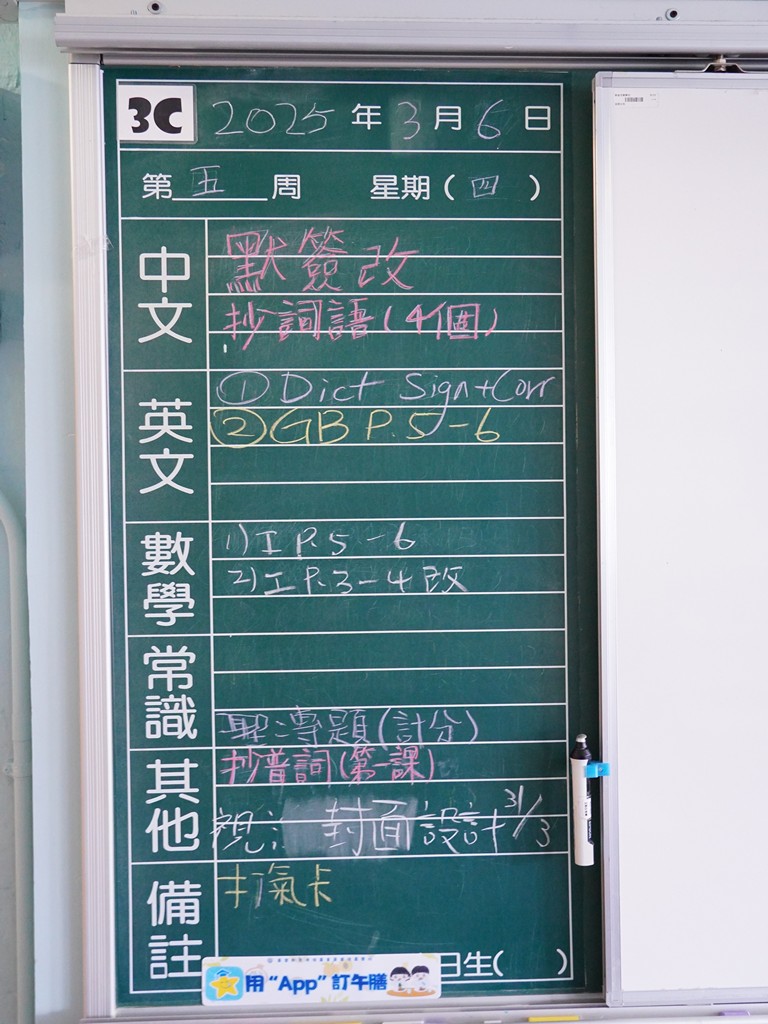 3C 2025年3月6日
第五周 星期(四)
中文
默簽改
抄詞語(4個)
英文
① Dict Sign+Corr
② GB P.5-6
數學
1) I P.5-6
2) I P.3-4 改
常識
專題(計分)
其他
抄普詞(第一課)
視: 封面設計 31/3
備註
氣卡
日生( )
用“App”訂午膳